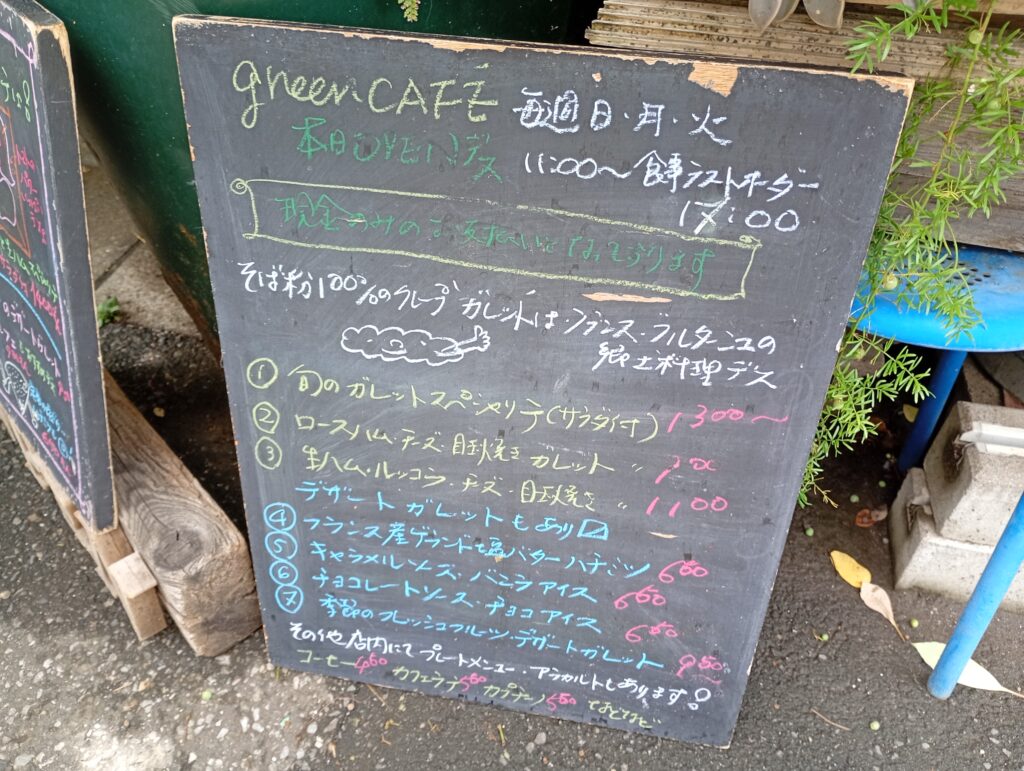 green CAFE 毎週日・月・火
本日OPENデス 11:00〜食事ラストオーダー
17:00
現金のみのお支払いとなっております
そば粉100%のクレープ ガレットは・フランス・ブルターニュの
郷土料理デス
① 旬のガレットスペシャリテ(サラダ付) 1300〜
② ロースハム・チーズ・目玉焼き ガレット 〃
③ 生ハム・ルッコラ・チーズ・目玉焼き 〃 1100
デザートガレットもあり〼
④ フランス産ゲランド塩バターハチミツ 660
⑤ キャラメルソース・バニラアイス 660
⑥ チョコレートソース・チョコアイス 660
⑦ 季節のフレッシュフルーツ・デザートガレット 950〜
その他店内にて プレートメニュー・アラカルトもあります!
コーヒー460 カフェラテ550 カプチーノ550 などなど